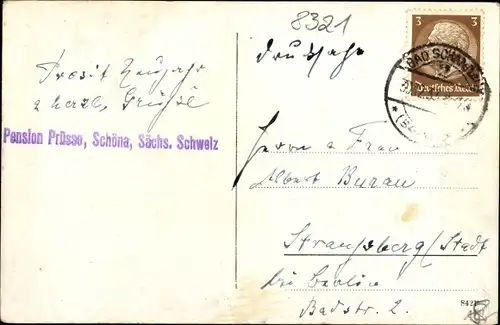 8321
Drucksache
3 3
Deutsches Reich
BAD SCHANDAU
Prosit Neujahr
u herzl. Grüße
Pension Prüsse, Schöna, Sächs. Schweiz
Herrn u Frau
Albert Burau
Strausberg/Stadt
bei Berlin
Badstr. 2.